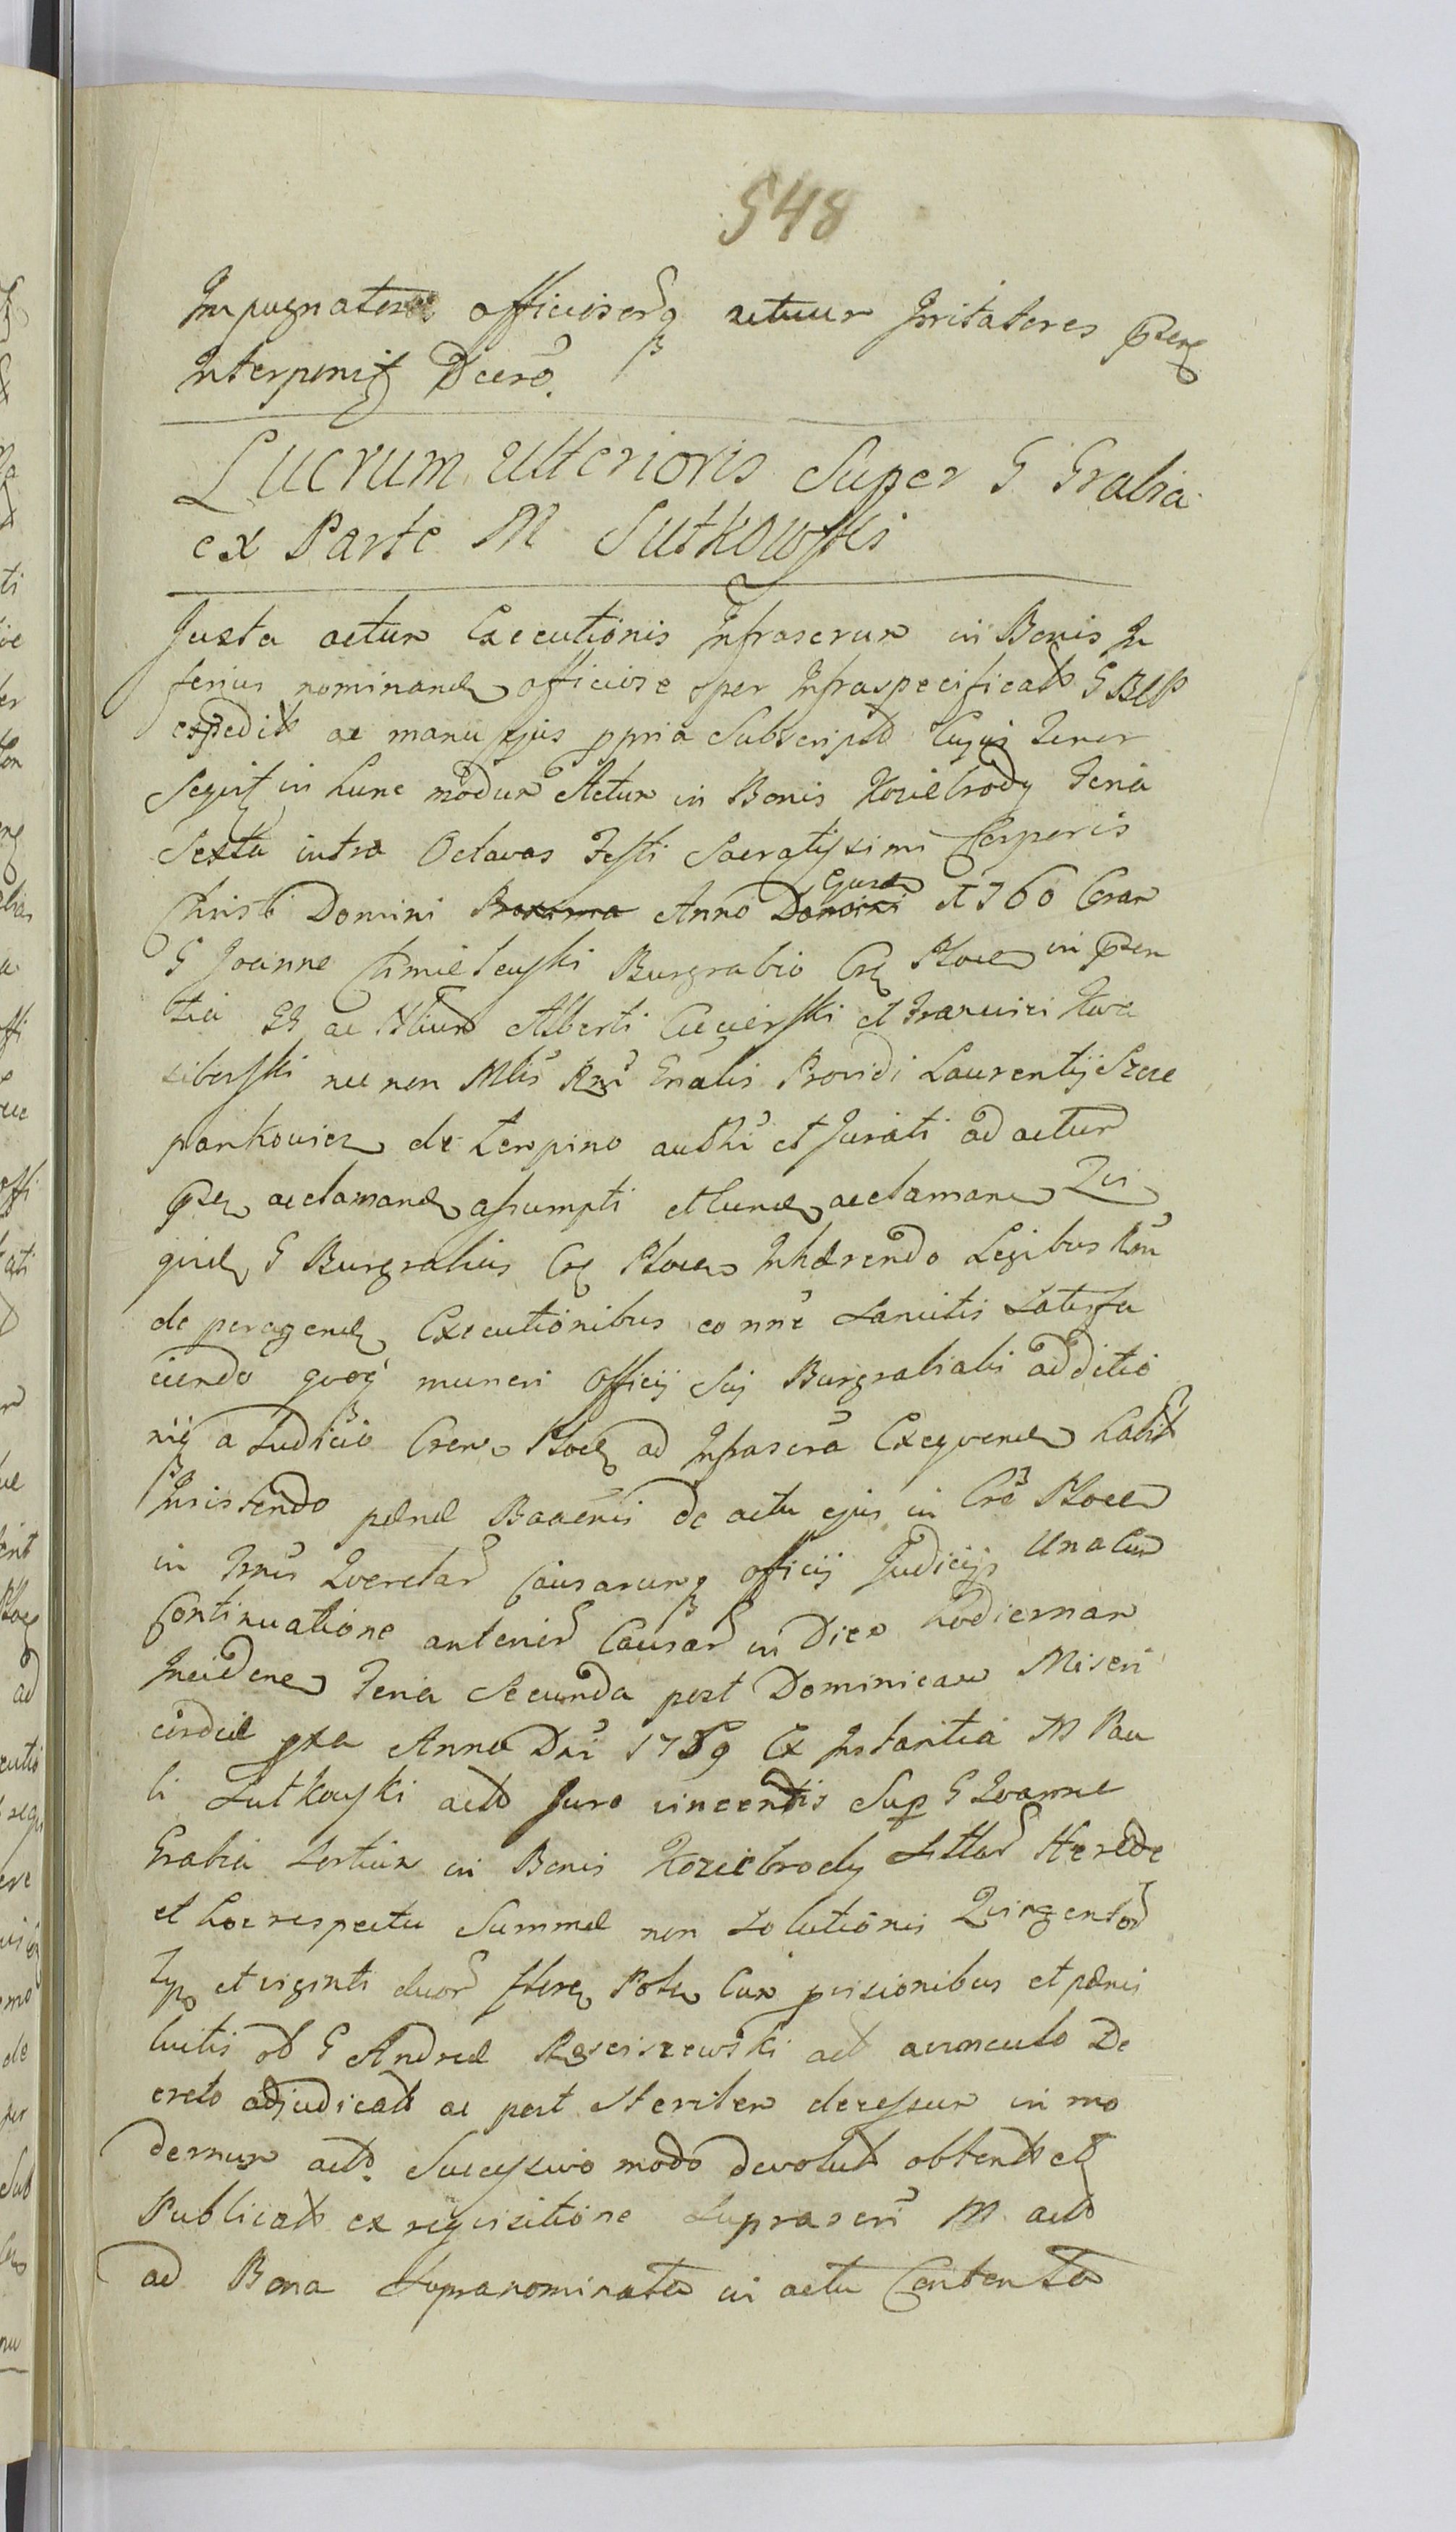 548
Impugnatores officiosorq actuum Irritatores
Interponit Dcero.
Lucrum ulterioris Super G Grabia
ex Parte M Sutkowski
Juxta actum Executionis Infrascrum in Bonis In
ferius nominand officiose per Infraspecificat G
expedit ac manu ejus ppria Subscript Cujus Tenor
Seqvit in hunc modum Actum in Bonis Koziebrody Feria
Sexta intra Octavas Festi Sacratissimi Corporis
Christi Domini Proxima Anno Domini ejusd 1760 Coram
G Joanne Chmielewski Burgrabio Cr Ploce in
tia GG ac Alberti et Kwa
siborski nec non Mlis Rni Gnalis Providi Laurentij Szcze
pankowicz de Lempino authi et Jurati ad actum
acclamand assumpti et acclamand Qui
quid G Burgrabius Cr Ploce Inhærendo Legibus Rni
de peragend Executionibus eo nne Sancitis Satisfa
ciendo qvoq muneri Officij Sui Burgrabialis additio
niq a Judicio Cren Ploce ad Infrascra Exeqvend habit
Insistendo de actu ejus in Cro Ploce
in Tnis Qverelar Causarumq officij Judicijs Una Cum
Continuatione anterior Causar in Diem hodiernam
Inciden Feria Secunda post Dominicam Miseri
cordiæ pxa Anno Dni 1759 Ex Instantia M Pau
li Sutkowski act Juro vincentis Sup G Ioanne
Grabia Sortium in Bonis Koziebrody Littar Herede
et hoc respectu Summæ non Solutionis Qvingentor
et viginti duor flore Polo Cum pvisionibus et pænis
luitis ob G Andreæ Rosciszewski act avunculo De
creto adjudicat ac post Steriler decessum in mo
dernum act Successivo modo devolut obtent et
Publicat ex reqvisitione Suprascri M act
ad Bona Supranominata in actu Contenta